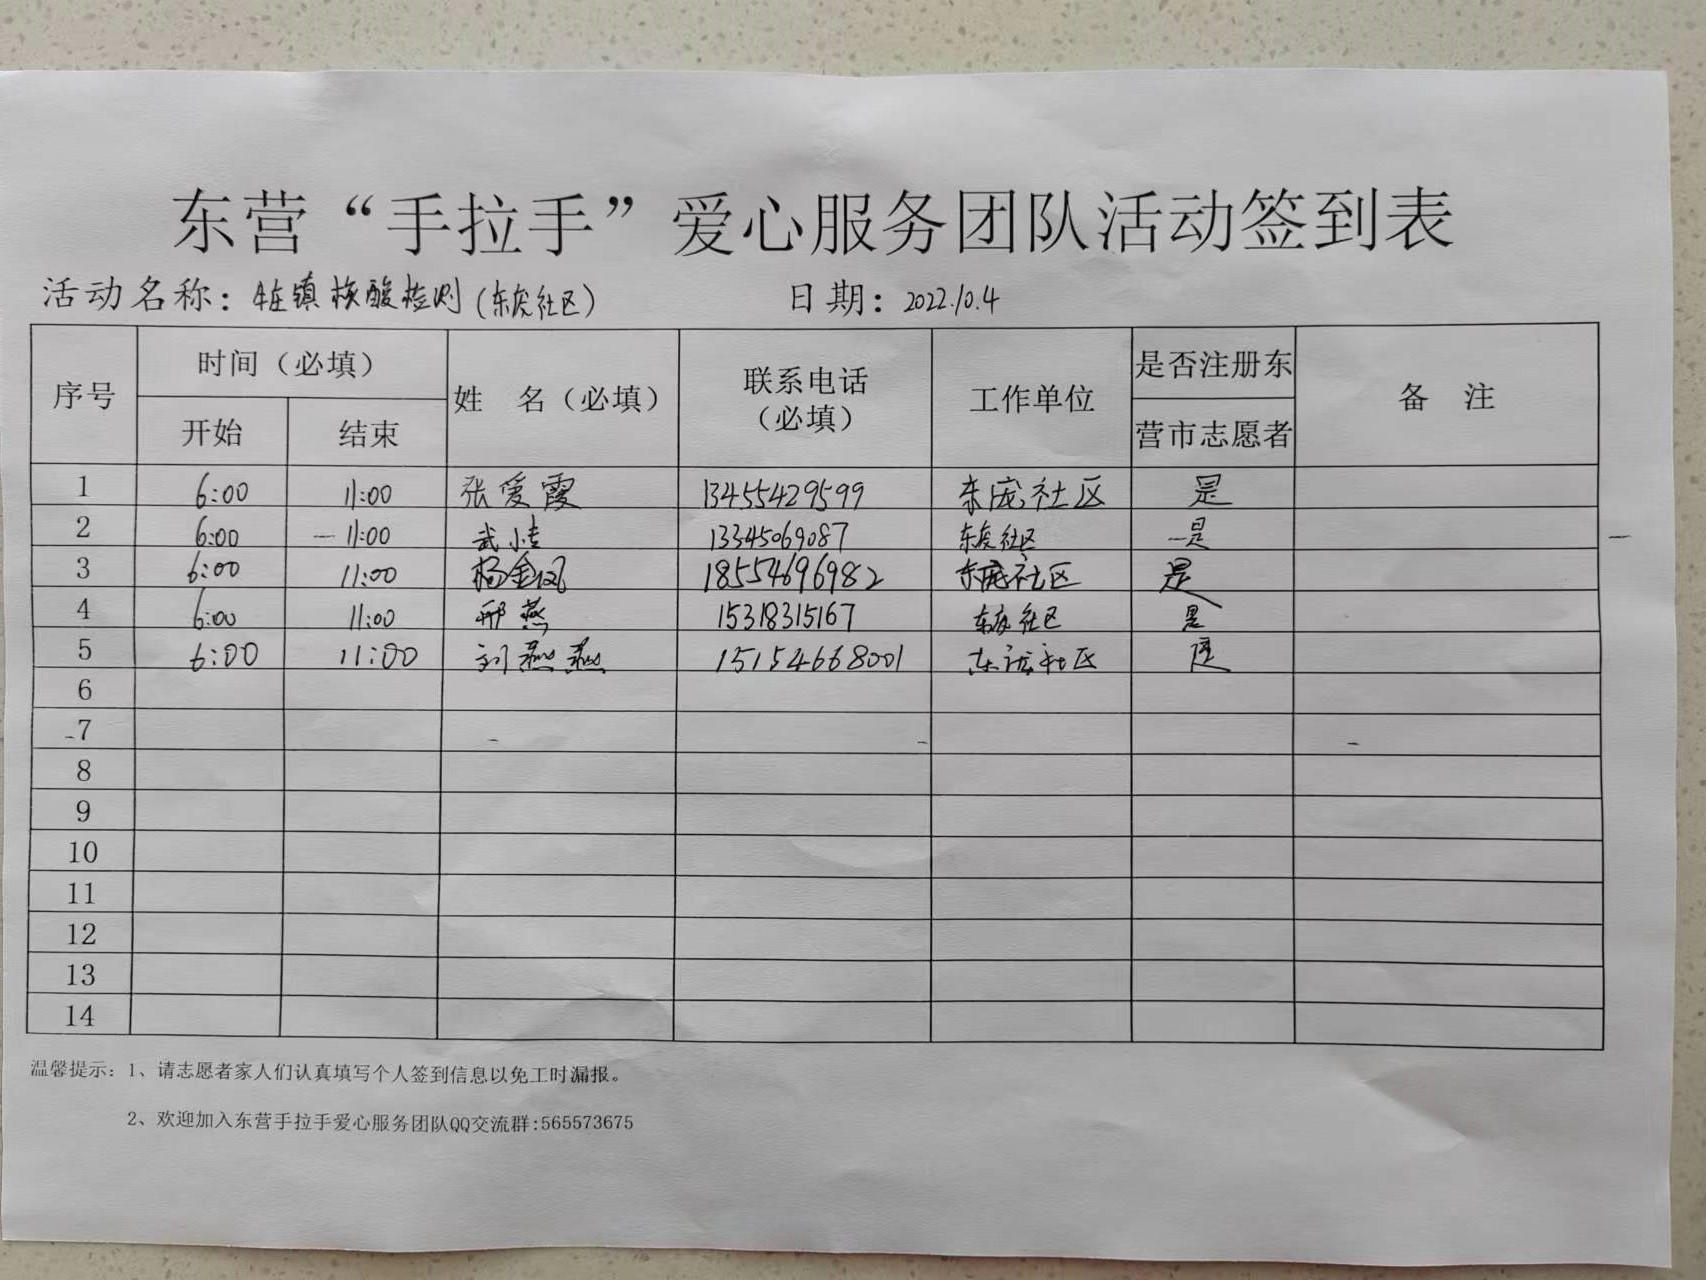 东营“手拉手”爱心服务团队活动签到表
活动名称：牛庄镇核酸检测（东庞社区） 日期：2022.10.4
序号 时间（必填） 姓 名（必填） 联系电话（必填） 工作单位 是否注册东营市志愿者 备 注
开始 结束
1 6:00 11:00 张爱霞 13455429599 东庞社区 是
2 6:00 11:00 武小 13345069087 东庞社区 是
3 6:00 11:00 杨金凤 18554696982 东庞社区 是
4 6:00 11:00 邢燕 15318315167 东庞社区 是
5 6:00 11:00 刘燕燕 15154668001 东庞社区 是
6
7
8
9
10
11
12
13
14
温馨提示：1、请志愿者家人们认真填写个人签到信息以免工时漏报。
2、欢迎加入东营手拉手爱心服务团队QQ交流群:565573675